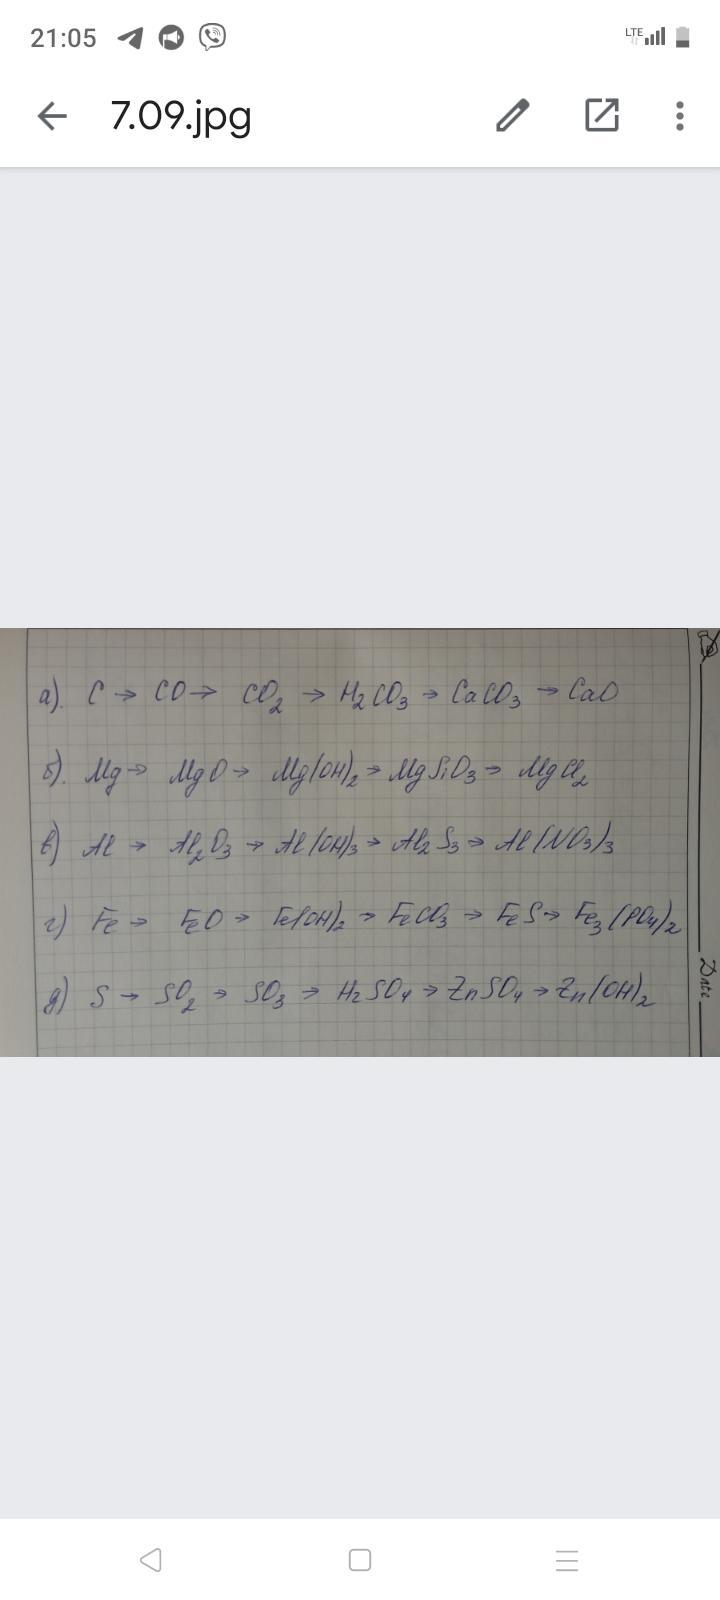 21:05
LTE
7.09.jpg
а). C → CO → CO2 → H2CO3 → CaCO3 → CaO
б). Mg → MgO → Mg(OH)2 → MgSiO3 → MgCl2
в) Al → Al2O3 → Al(OH)3 → Al2S3 → Al(NO3)3
г) Fe → FeO → Fe(OH)2 → FeCO3 → FeS → Fe3(PO4)2
д) S → SO2 → SO3 → H2SO4 → ZnSO4 → Zn(OH)2
Date